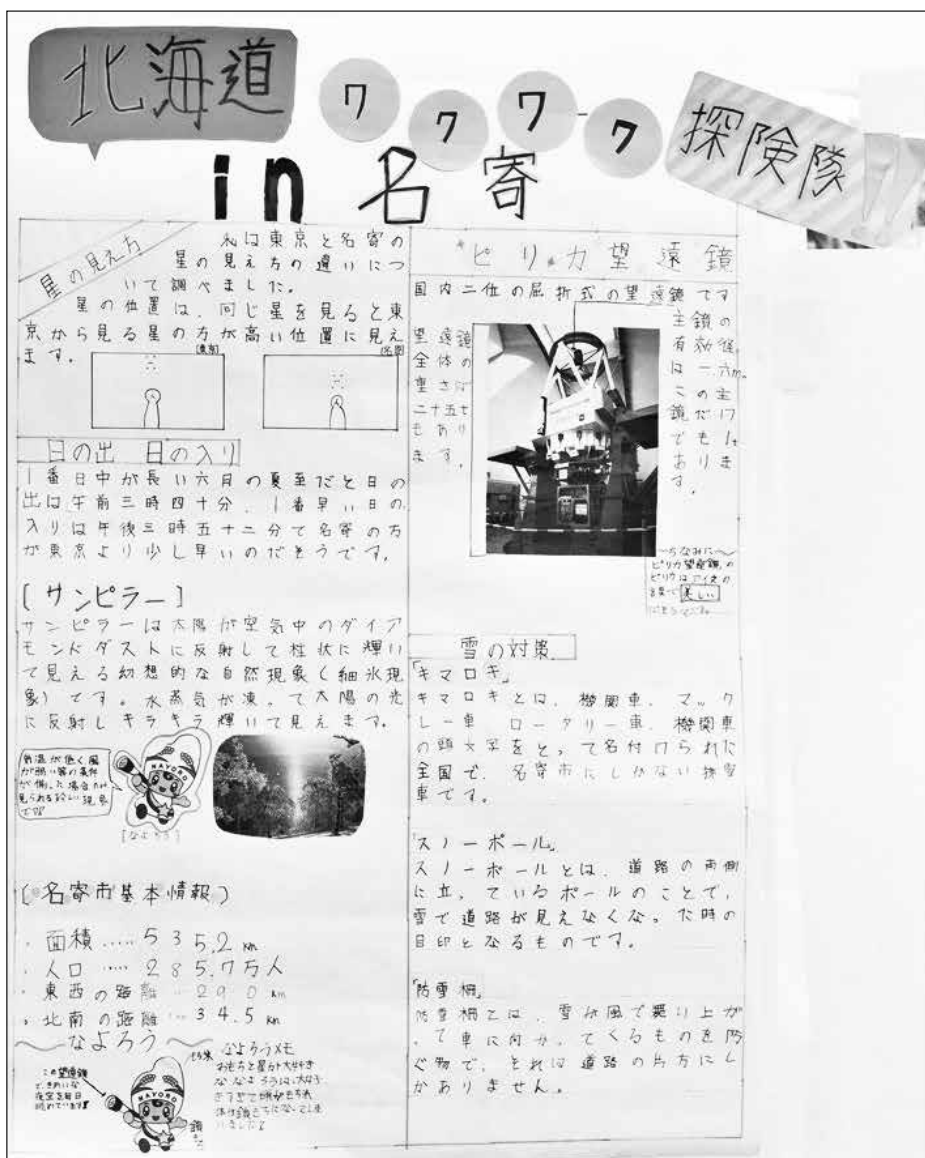 北海道
ワクワク
探険隊!!
in 名寄
星の見え方
私は東京と名寄の
星の見え方の違いにつ
いて調べました。
星の位置は、同じ星を見ると東
京から見る星の方が高い位置に見え
ます。
(東京)
日の出 日の入り
1番日中が長い六月の夏至だと日の
出は午前三時四十分、1番早い日の
入りは午後三時五十二分で名寄の方
が東京より少し早いのだそうです。
[サンピラー]
サンピラーは太陽が空気中のダイア
モンドダストに反射して柱状に輝い
て見える幻想的な自然現象(細氷現
象)です。水蒸気が凍って太陽の光
に反射しキラキラ輝いて見えます。
気温が低く風
が弱い等の条件
が揃った場合のみ
見られる珍しい現象
です!
NAYORO
[なよろう]
[名寄市基本情報]
・面積……535.2km
・人口……285.7万人
・東西の距離…29.0km
・北南の距離…34.5km
〜なよろう〜
この望遠鏡
で、きれいな
夜空を毎日
眺めています!
NAYORO
なよろうメモ
おもちと星が大好き
ななよろうは、大好き
すぎて頭がもち米
体は鏡もちになってしま
いました!
もち米
鏡もち
"ピリカ望遠鏡
国内二位の屈折式の望遠鏡です
主鏡の
有効径
は一.六m。
この主
鏡だけ
でも1t
ありま
す。
望遠鏡
全体の
重さは
二十五t
もあり
ます。
〜ちなみに〜
ピリカ望遠鏡の
ピリカはアイヌの
言葉で美しい
雪の対策
「キマロキ」
キマロキとは、機関車、マック
レー車 ロータリー車、機関車
の頭文字をとって名付けられた
全国で、名寄市にしかない排雪
車です。
「スノーポール」
スノーポールとは、道路の両側
に立っているポールのことで、
雪で道路が見えなくなった時の
目印となるものです。
「防雪柵」
防雪柵とは、雪が風で舞い上が
って車に向かってくるものを防
ぐ物で、それは道路の片方にし
かありません。